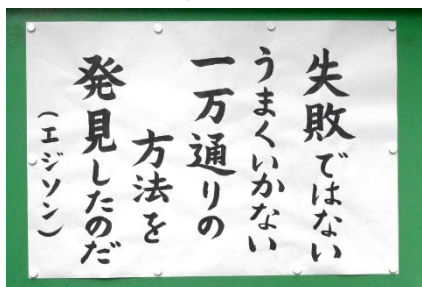 失敗ではない
うまくいかない
一万通りの
方法を
発見したのだ
(エジソン)